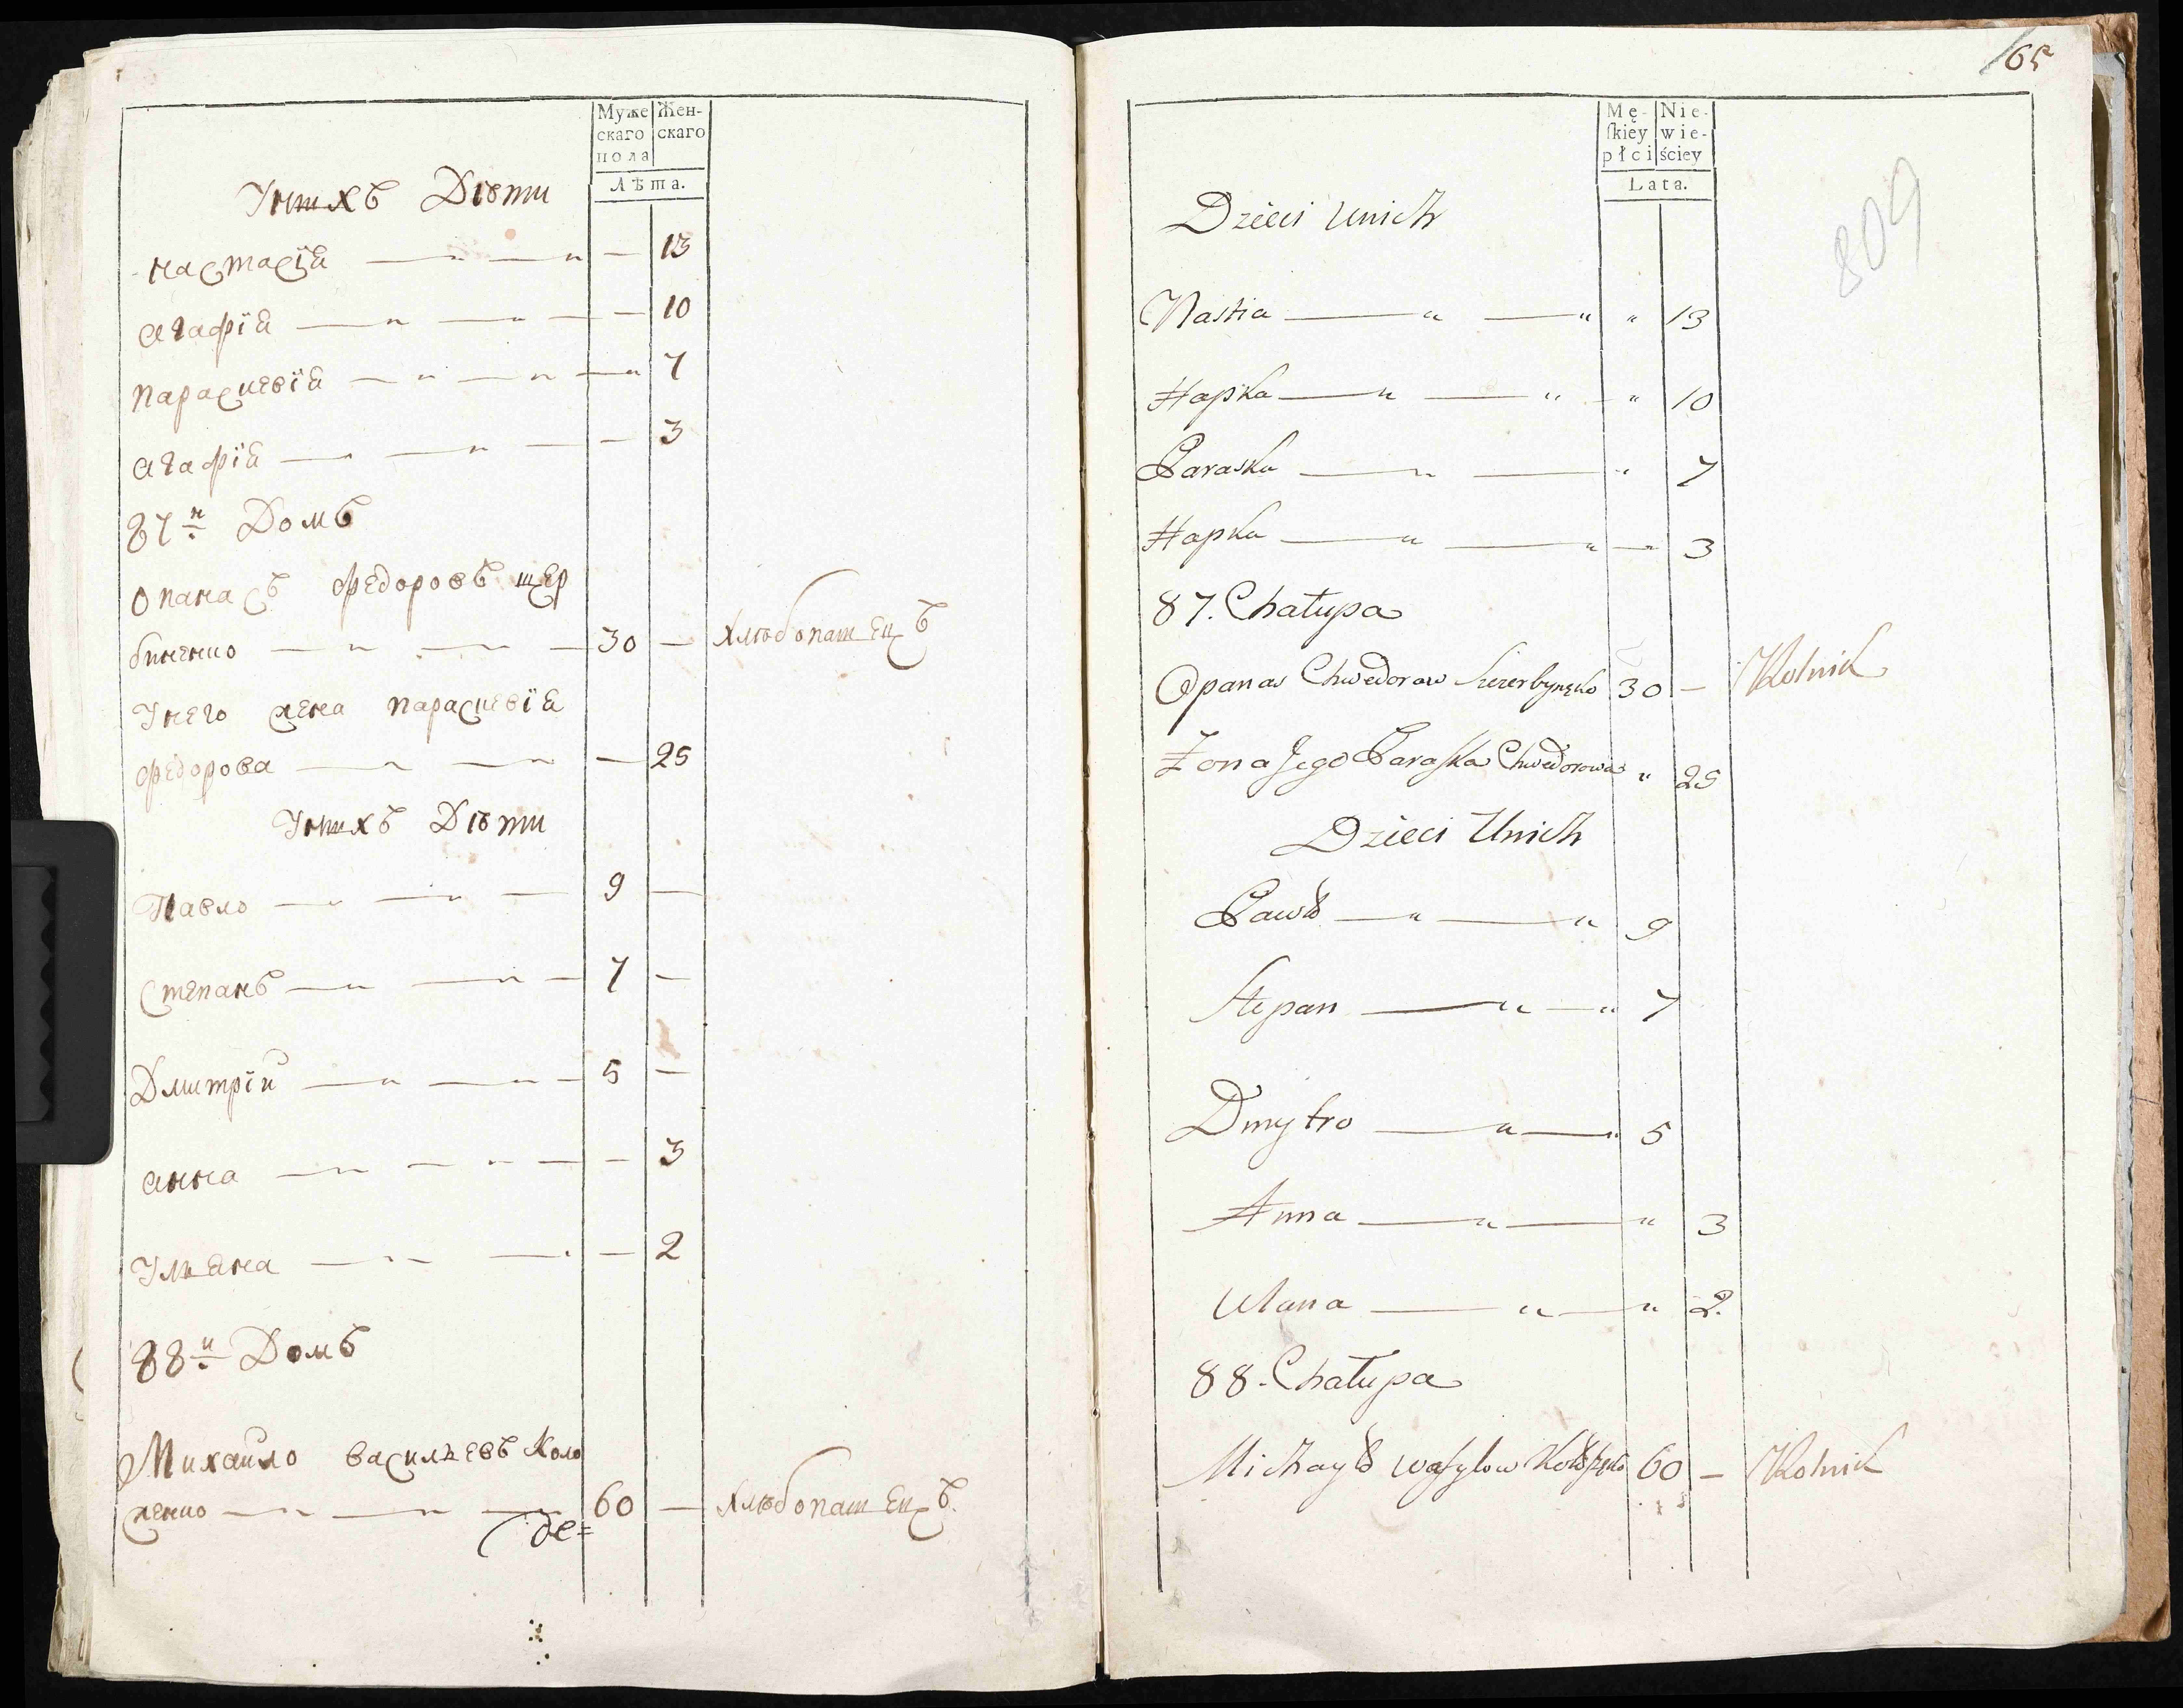 Муже
скаго
пола
Жен-
скаго
Лѣта.
Унихъ Дѣти
настасїя — — — 13
агафїя — — — 10
параскевїя — — — 7
агафїя — — — 3
87й Домъ
Опанасъ Федоровъ щер
биненко — — — 30 — хлѣбопашецъ
Унего жена параскевїя
федорова — — — 25
Унихъ Дѣти
Павло — — — 9 —
Степанъ — — — 7 —
Дмитрїй — — — 5 —
анна — — — 3
Ульяна — — — 2
88й Домъ
Михайло васильевъ Коло
женко — — — 60 — хлѣбопашецъ
де=
165
809
Mę-
ſkiey
płci
Nie-
wie-
ściey
Lata.
Dzieci Unich
Nastia — " — " " 13
Hapka — " — " " 10
Paraska — " — " 7
Hapka — " — " — 3
87. Chałupa
Opanas Chwedorow Szczerbynęko 30 — Rolnik
Żona Jego Paraſka Chwedorowa " 25
Dzieci Unich
Pawło — " — " 9
Stepan — " — " 7
Dmytro — " — " 5
Anna — " — " 3
Ulana — " — " 2.
88. Chałupa
Michayło Waſylow 60 — Rolnik